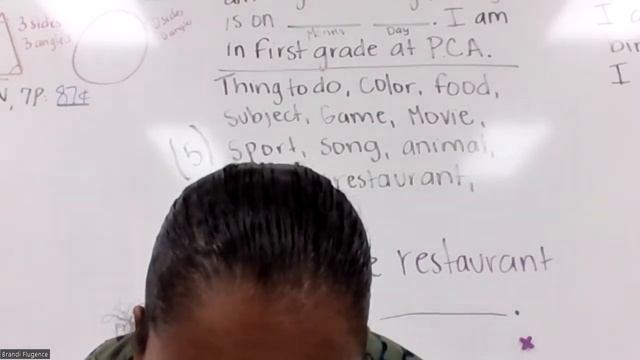 3 sides
3 angles
0 sides
0 angles
, 7P: 87¢
is on ______ ______. I am
Day
in first grade at P.C.A.
Thing to do, Color, food,
subject, Game, Movie,
(5) sport, song, animal,
restaurant,
restaurant
______.
x
I
I
Brandi Flugence